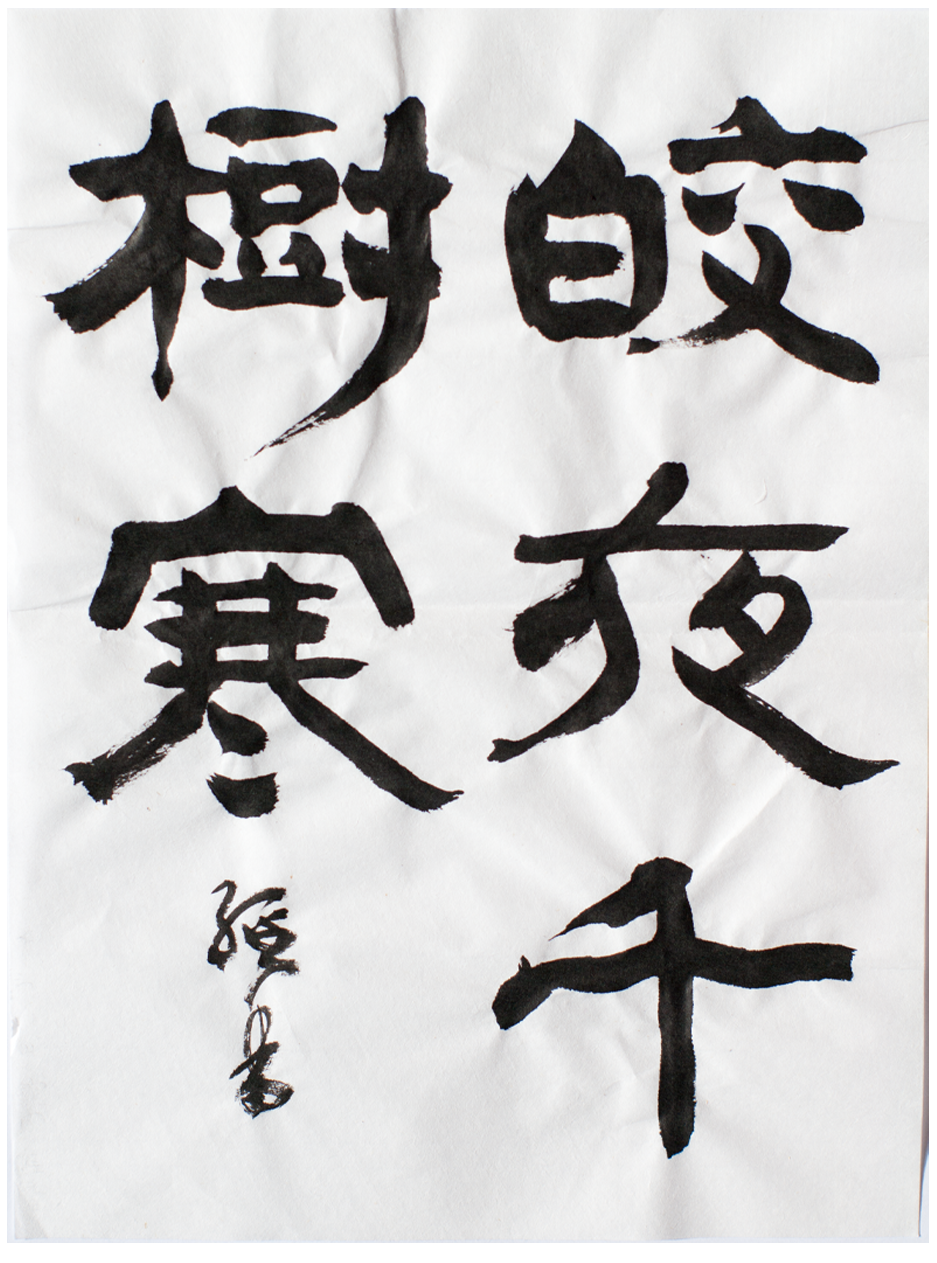 皎夜千
樹寒
書